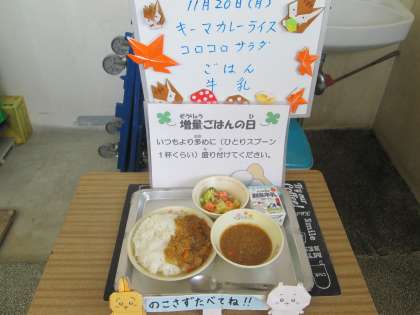 11月20日(月)
キーマカレーライス
コロコロサラダ
ごはん
牛乳
ぞうりょう ひ
増量ごはんの日
いつもより多めに（ひとりスプーン
1杯くらい）盛り付けてください。
のこさずたべてね!!